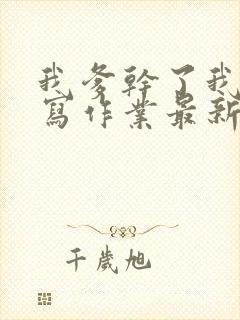 我爹幹了我
寫作業最新
千歲旭